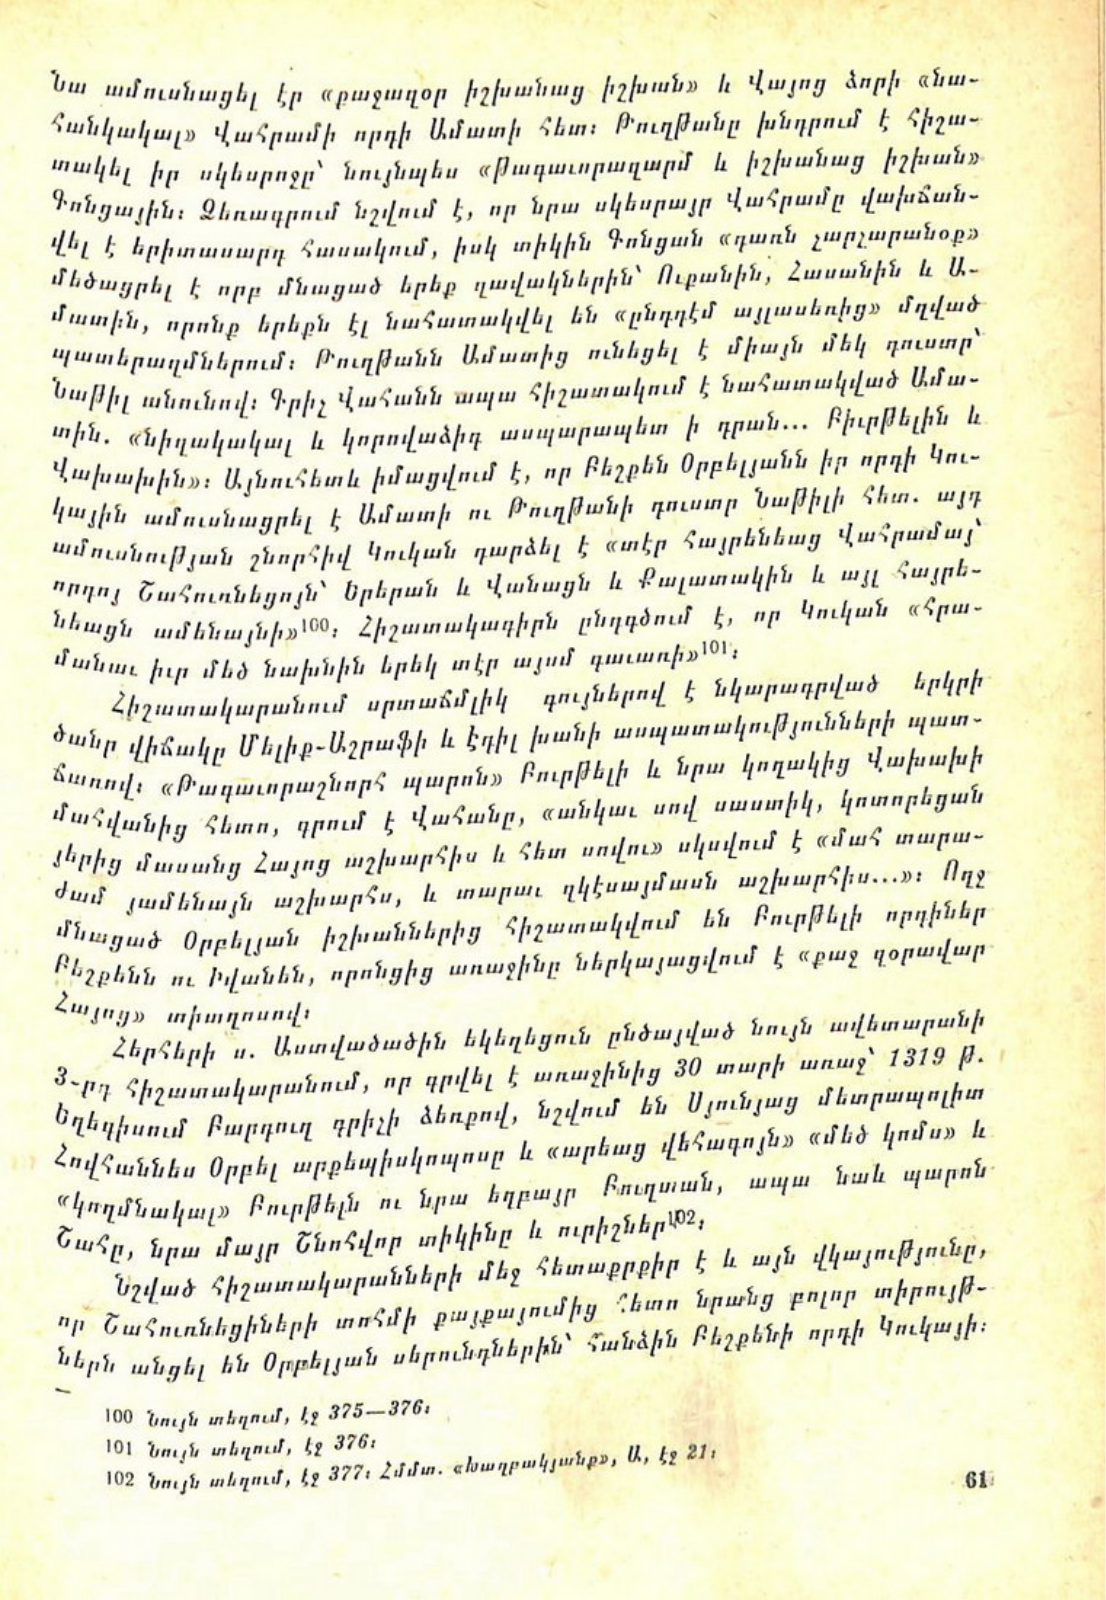 Նա ամուսնացել էր «քաջաղօր իշխանաց իշխան» և Վայոց ձորի «նա-
հանկակալ» Վահրամի որդի Ամատի հետ։ Թուղթանը խնդրում է հիշա-
տակել իր սկեսրոջը՝ նույնպես «թագաւորազարմ և իշխանաց իշխան»
Գոնցային։ Ձեռագրում նշվում է, որ նրա սկեսրայր Վահրամը վախճան-
վել է երիտասարդ հասակում, իսկ տիկին Գոնցան «դառն չարչարանօք»
մեծացրել է որբ մնացած երեք զավակներին՝ Ուքանին, Հասանին և Ա-
մատին, որոնք երեքն էլ նահատակվել են «ընդդէմ այլասեռից» մղված
պատերազմներում։ Թուղթանն Ամատից ունեցել է միայն մեկ դուստր՝
Նաթիլ անունով։ Գրիչ Վահանն ապա հիշատակում է նահատակված Ամա-
տին. «նիզակակալ և կորովաձիգ ասպարապետ ի դրան... Բիւրթելին և
Վախախին»։ Այնուհետև իմացվում է, որ Բեշքեն Օրբելյանն իր որդի Կու-
կային ամուսնացրել է Ամատի ու Թուղթանի դուստր Նաթիլի հետ. այդ
ամուսնության շնորհիվ Կուկան դարձել է «տէր հայրենեաց Վահրամայ՝
որդոյ Շահուռնեցոյն՝ Երերան և Վանացն և Քալատակին և այլ հայրե-
նեացն ամենայնի»100։ Հիշատակագիրն ընդգծում է, որ Կուկան «հրա-
մանաւ իւր մեծ նախնին երեկ տէր այսմ գաւառի»101։
Հիշատակարանում սրտաճմլիկ գույներով է նկարագրված երկրի
ծանր վիճակը Մելիք-Աշրաֆի և Էդիլ խանի ասպատակությունների պատ-
ճառով։ «Թագաւորաշնորհ պարոն» Բուրթելի և նրա կողակից Վախախի
մահվանից հետո, գրում է Վահանը, «անկաւ սով սաստիկ, կոտորեցան
յերից մասանց Հայոց աշխարհիս և հետ սովու» սկսվում է «մահ տարա-
ժամ յամենայն աշխարհս, և տարաւ զկէսայմասն աշխարհիս...»։ Ողջ
մնացած Օրբելյան իշխաններից հիշատակվում են Բուրթելի որդիներ
Բեշքենն ու Իվանեն, որոնցից առաջինը ներկայացվում է «քաջ զօրավար
Հայոց» տիտղոսով։
Հերհերի ս. Աստվածածին եկեղեցուն ընծայված նույն ավետարանի
3-րդ հիշատակարանում, որ գրվել է առաջինից 30 տարի առաջ՝ 1319 թ.
Եղեգիսում Բարդուղ գրիչի ձեռքով, նշվում են Սյունյաց մետրապոլիտ
Հովհաննես Օրբել արքեպիսկոպոսը և «արեաց վեհագոյն» «մեծ կոմս» և
«կողմնակալ» Բուրթելն ու նրա եղբայր Բուղտան, ապա նաև պարոն
Շահը, նրա մայր Շնոհվոր տիկինը և ուրիշներ102։
Նշված հիշատակարանների մեջ հետաքրքիր է և այն վկայությունը,
որ Շահուռնեցիների տոհմի քայքայումից հետո նրանց բոլոր տիրույթ-
ներն անցել են Օրբելյան սերունդներին՝ հանձին Բեշքենի որդի Կուկայի։
100 Նույն տեղում, էջ 375—376։
101 Նույն տեղում, էջ 376։
102 Նույն տեղում, էջ 377։ Հմմտ. «Խաղբակյանք», Ա, էջ 21։
61